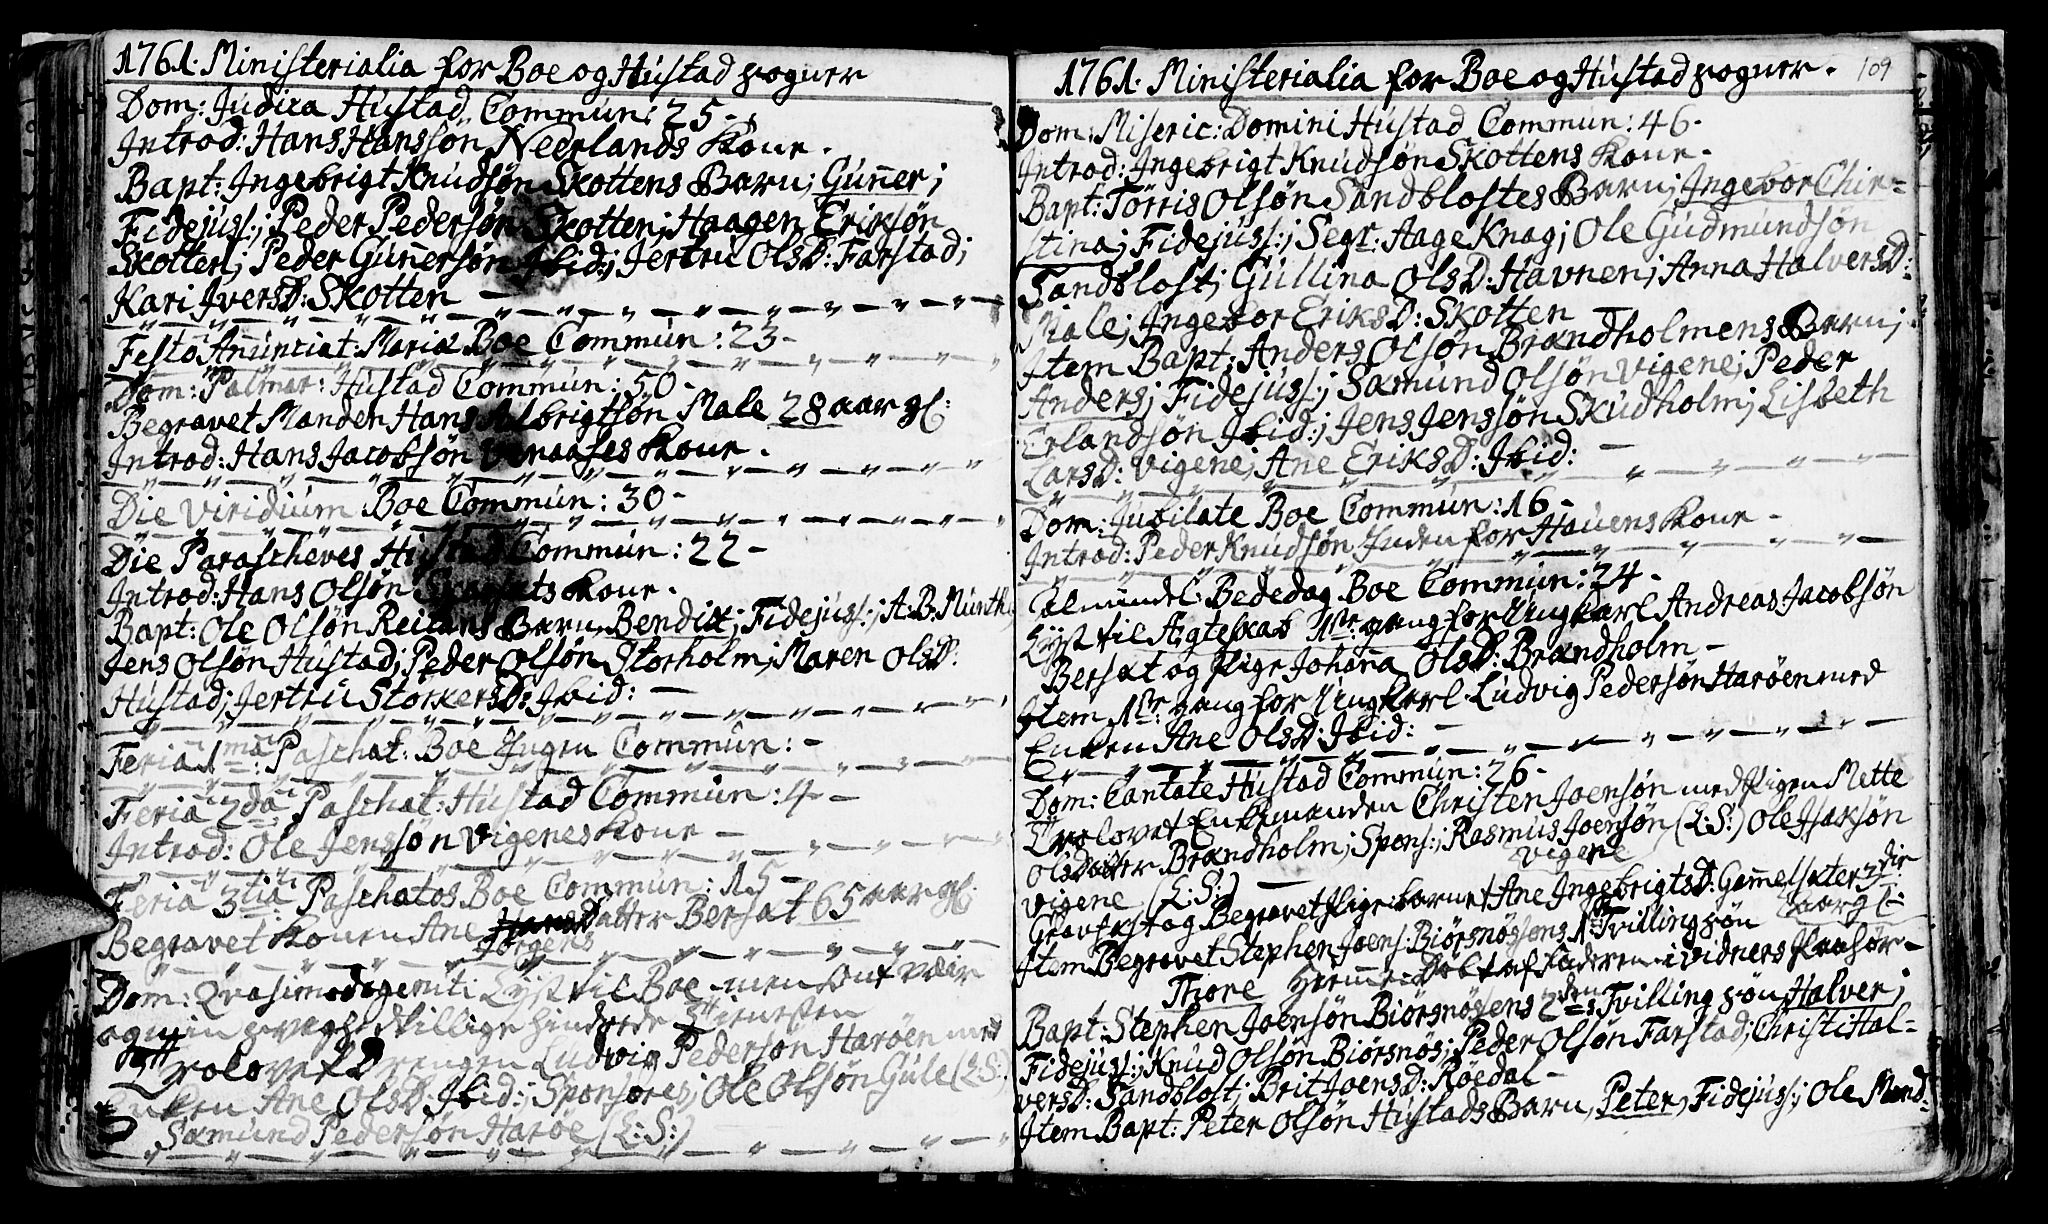 1761. Ministerialia for Boe og Hústad sogner
Dom: Judica Hústad Commún: 25 -
Introd: Hans Hansøn Neerlands kone.
Bapt: Ingebrigt Knúdsøn Skottens Barn; Gúñer;
Fidejúss:; Peder Pedersøn Skotten; Haagen Eriksøn
Skotten; Peder Gúñersøn Ibid:; Jertrú OlsD: Farstad;
Kari IversD: Skotten —
Festo Añúnciat: Mariæ Boe Commún: 23 -
Dom: Palmar: Hústad Commún: 50 -
Begravet Manden Hans Albrigtsøn Male 28 aar gl:
Introd: Hans Jacobsøn Vraases kone.
Die Viridiúm Boe Commún: 30 -
Die Parascheves Hústad Commún: 22 -
Introd: Hans Olsøn kone.
Bapt: Ole Olsøn Reitans Barn, Bendix; Fidejúss:; A: B: Múnthe
Jens Olsøn Hústad; Peder Olsøn Storholm; Maren OlsD:
Hústad; Jertrú StorkersD: Ibid: —
Feria 1ma: Paschat: Boe Ingen Commún: -
Feria 2da: Paschat: Hústad Commún: 4 -
Introd: Ole Jenssøn Vigenes kone —
Feria 3tia: Paschatos Boe Commún: 15 -
Begravet konen Ane Jørgens datter Bersæt 65 aar gl:
Dom: Qvasimodogeniti Lyst til Boe men ont veir
og min svaghed skillige hindrede Tienesten
Trolovet Drengen Lúdvig Pedersøn Harøen med
Enken Ane OlsD: Ibid:; Sponsores; Ole Olsøn Gúle (L:S:)
Sæmúnd Pedersøn Harøe (L:S:)
1761. Ministerialia for Boe og Hústad sogner. 109
Dom: Miseric: Domini Hústad Commún: 46 -
Introd: Ingebrigt Knúdsøn Skottens kone -
Bapt: Tørris Olsøn Sandblostes Barn; Ingebor Chir=
stina; Fidejúss:; Segr: Aage Knag; Ole Gúdmúndsøn
Sandblost; Gúllina OlsD: Havnen; Anna HalversD:
Male; Ingebor EriksD: Skotten —
Item Bapt: Anders Olsøn Brandholmens Barn;
Anders; Fidejúss:; Sæmúnd Olsøn Vigene; Peder
Erlandsøn Ibid:; Jens Jenssøn Skúdholm; Lisbeth
LarsD: Vigene; Ane EriksD: Ibid: —
Dom: Júbilate Boe Commún: 16 -
Introd: Peder Knúdsøn Inden for Haúens kone -
Almindel: Bededag Boe Commún: 24 -
Lyst til Ægteskab 1ste gang for Ungkarl Andreas Jacobsøn
Bersæt og Pige Johaña OlsD: Brandholm —
Item 1ste gang for Ungkarl Lúdvig Pedersøn Harøen med
Enken Ane OlsD: Ibid: —
Dom: Cantate Hústad Commún: 26 -
Trolovet Enkemanden Christen Joensøn med Pigen Mette
Olsdatter Brandholm; Spons:; Rasmús Joensøn (L:S:) Ole Isaksøn
Vigene
Vigene (L:S:) —
Gravfæst og Begravet Pige barnet Ane IngebrigtsD: Gam̄elsæter 3die
aar gl:
Item Begravet Stephen Joens: Biørsnøssens 1ste Tvilling søn
Thore Hjem̄edøbt af Faderen i vidners Paasør -
Bapt: Stephen Joensøn Biørsnøsens 2den Tvilling søn, Halver;
Fidejúss:; Knúd Olsøn Biørsnøs; Peder Olsøn Farstad; Christi Hal=
versD: Sandblost; Brit JoensD: Roedal —
Item Bapt: Peter Olsøn Hústads Barn, Peter, Fidejúss:; Ole Mand=